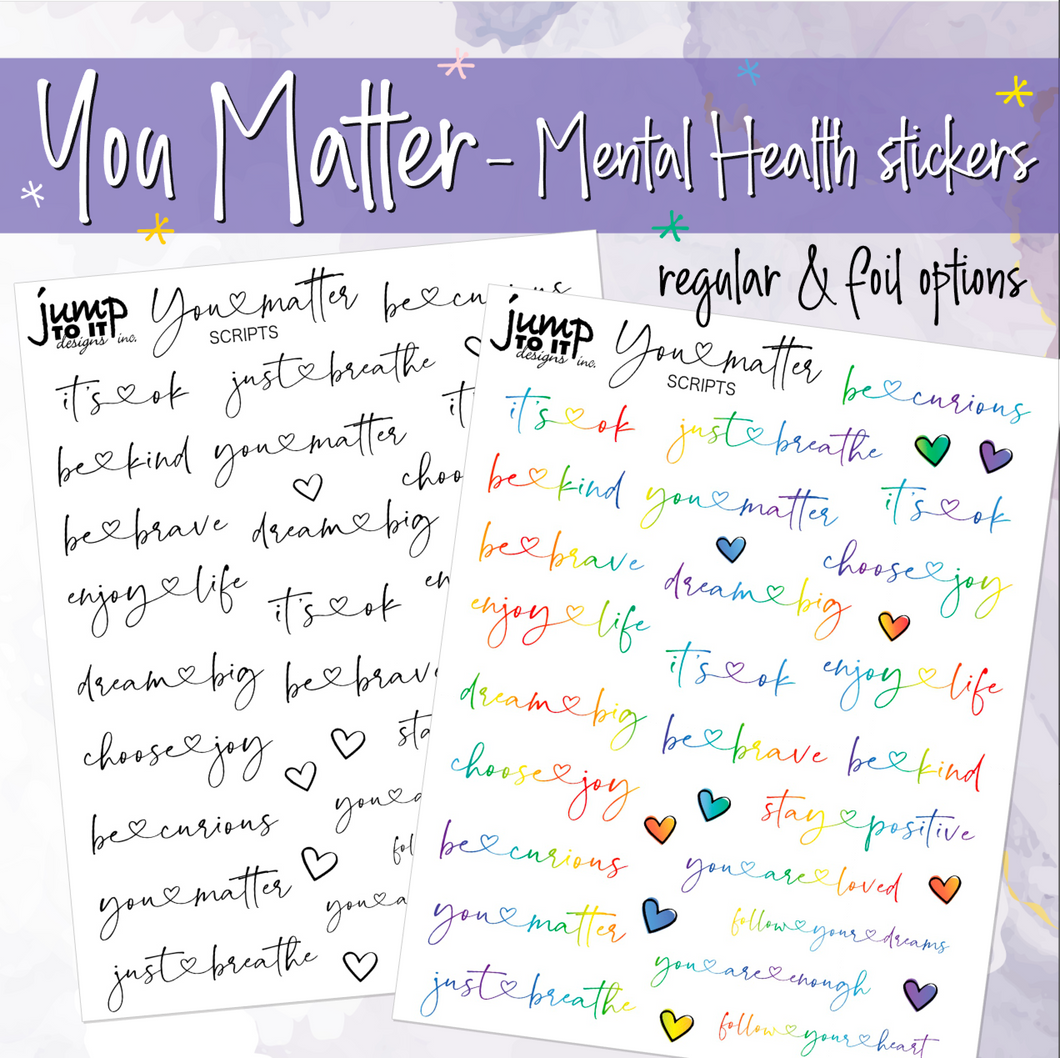 You Matter - Mental Health stickers
regular & foil options
jump
TO IT
designs inc.
You matter
SCRIPTS
be curious
it's ok
just breathe
be kind
you matter
be brave
dream big
enjoy life
it's ok
dream big
be brave
choose joy
be curious
you matter
just breathe
jump
TO IT
designs inc.
You matter
SCRIPTS
be curious
it's ok
just breathe
be kind
you matter
it's ok
be brave
choose joy
dream big
enjoy life
it's ok
enjoy life
dream big
be brave
be kind
choose joy
stay positive
be curious
you are loved
you matter
follow your dreams
you are enough
just breathe
follow your heart